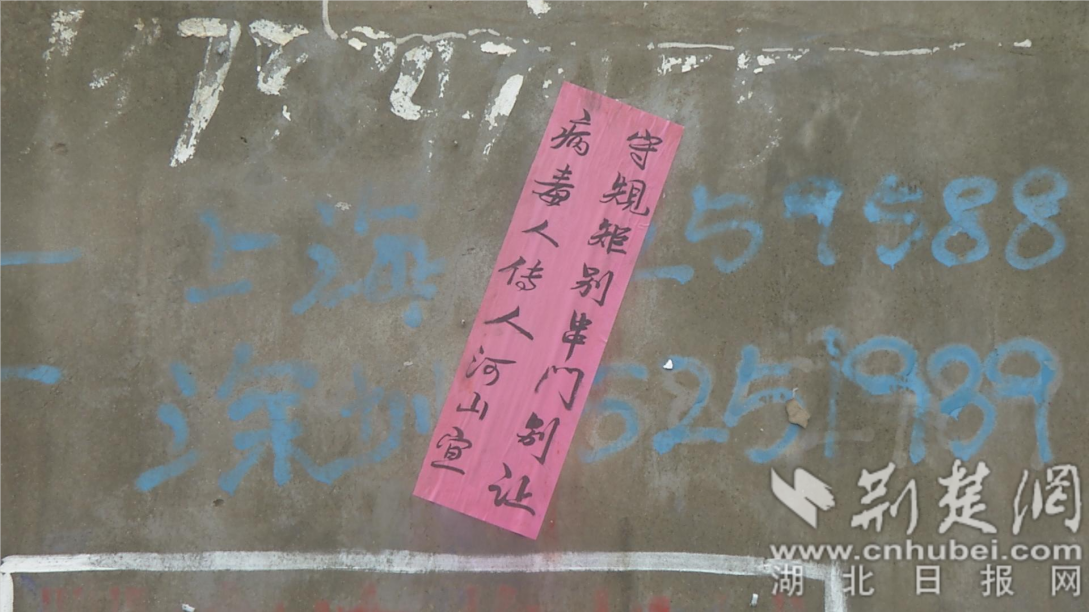 守规矩别串门别让
病毒人传人河山宣
上海 59588
深圳 5251989
荆楚网
www.cnhubei.com
湖北日报网